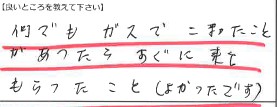 【良いところを教えて下さい】
何でもガスでこまったこと
があったらすぐに来て
もらったこと(よかったです)